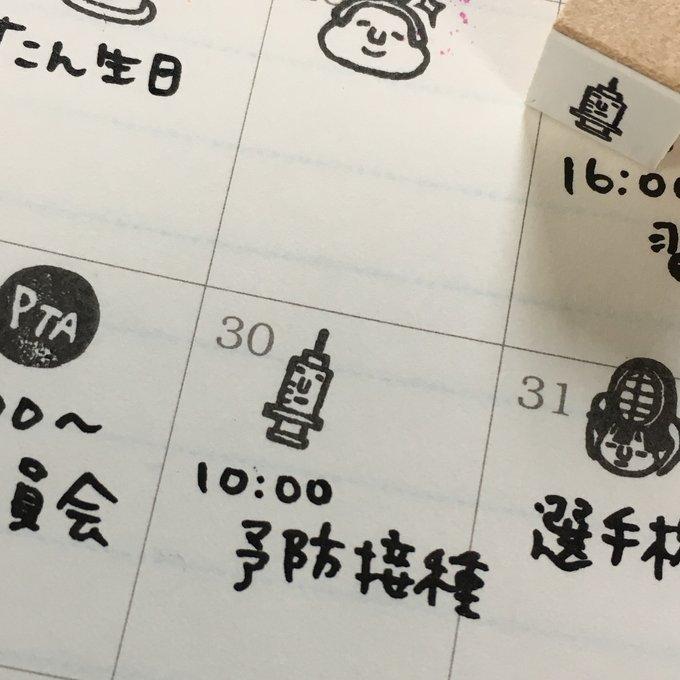 すこん生日
16:00
PTA
00～
員会
30
10:00
予防接種
31
選手